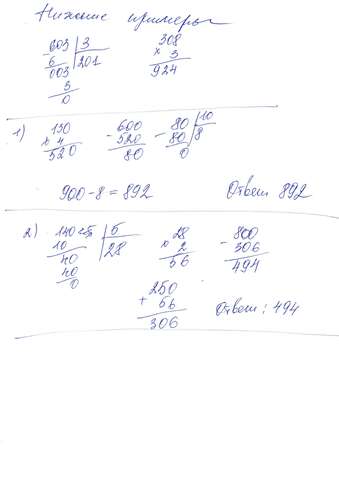 Нижние примеры
603 | 3
6 | 201
003
3
0
308
× 3
924
1) 130
× 4
520
600
- 520
80
80 | 10
80 | 8
0
900 - 8 = 892
Ответ 892
2) 140 | 5
10 | 28
40
40
0
28
× 2
56
800
- 306
494
250
+ 56
306
Ответ: 494